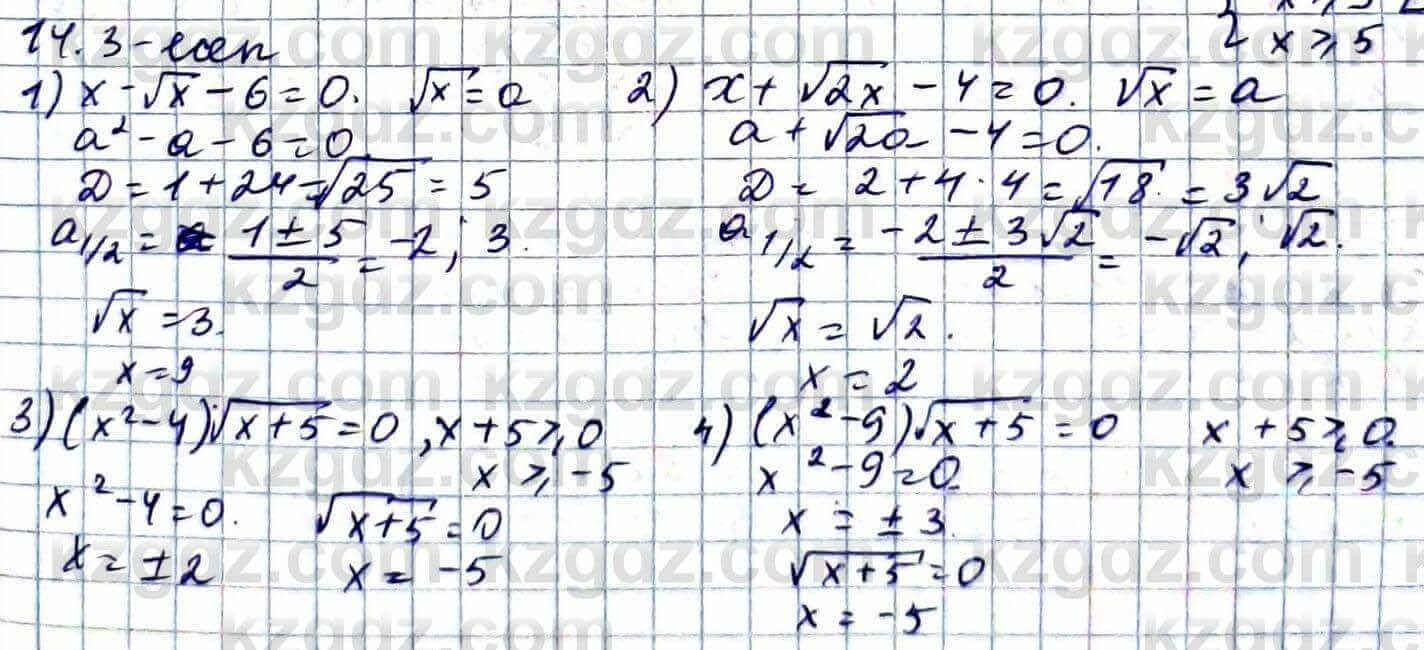 14.3-есеп
x ≥ 5
1) x - √x - 6 = 0. √x = a
a² - a - 6 = 0
D = 1 + 24 = √25 = 5
a₁/₂ = (1 ± 5)/2 = -2; 3.
√x = 3.
x = 9
2) x + √2x - 4 = 0. √x = a
a + √2a - 4 = 0.
D = 2 + 4 · 4 = √18 = 3√2
a₁/₂ = (-2 ± 3√2)/2 = -√2; √2.
√x = √2.
x = 2
3) (x² - 4)√x+5 = 0, x + 5 ≥ 0
x ≥ -5
x² - 4 = 0. √x+5 = 0
x = ±2 x = -5
4) (x² - 9)√x+5 = 0 x + 5 ≥ 0.
x² - 9 = 0. x ≥ -5
x = ±3.
√x+5 = 0
x = -5